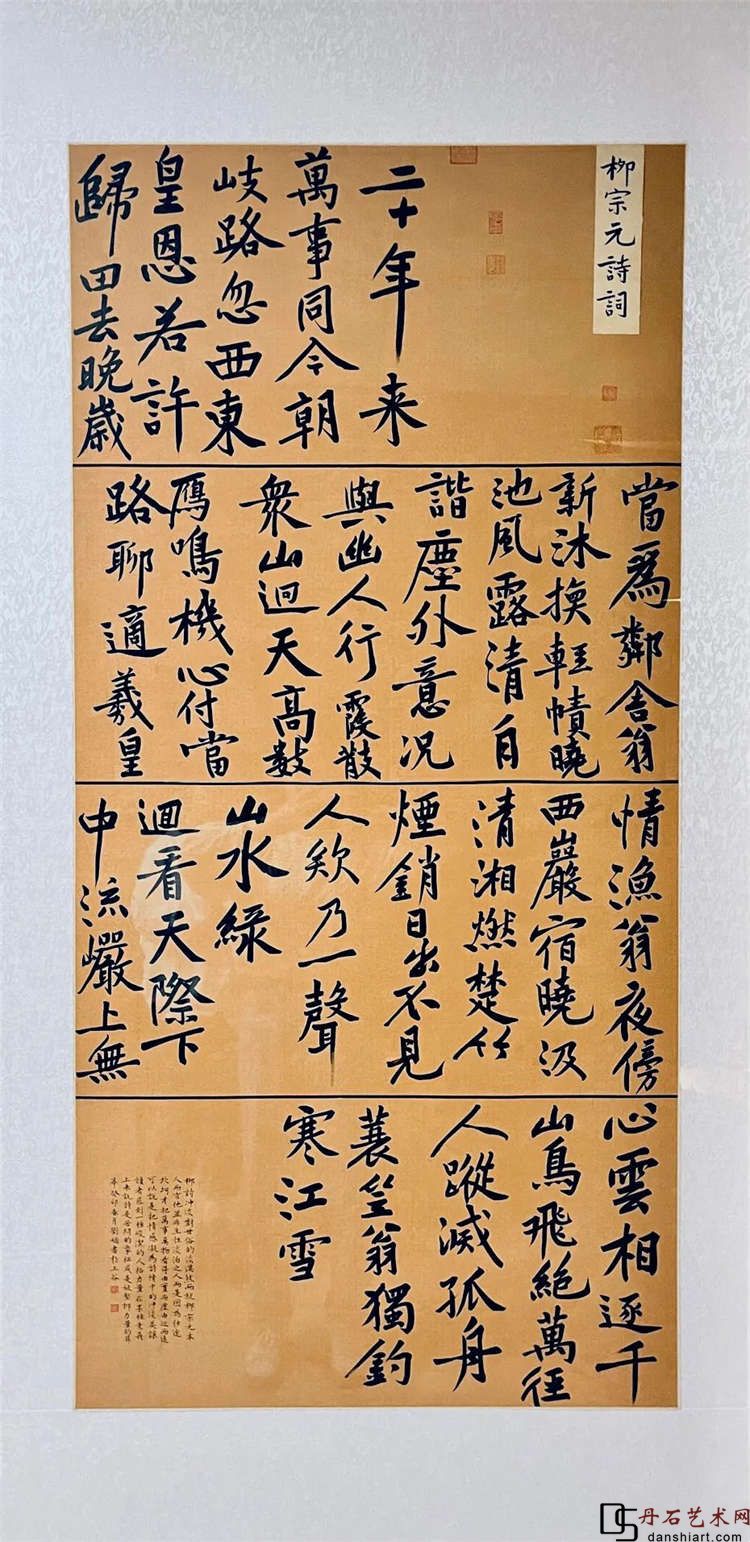 柳宗元詩詞
二十年来
萬事同今朝
岐路忽西東
皇恩若許
歸田去晚歲
當爲鄰舍翁
新沐換輕幘曉
池風露清自
諧塵外意況
與幽人行霞散
衆山迥天高數
鴈鳴機心付當
路聊適羲皇
情漁翁夜傍
西巖宿曉汲
清湘燃楚竹
煙銷日出不見
人欸乃一聲
山水綠
迴看天際下
中流巖上無
心雲相逐千
山鳥飛絕萬徑
人蹤滅孤舟
蓑笠翁獨釣
寒江雪
柳詩冲淡對世俗的淡漠 柳宗元本
丹石艺术网
danshiart.com